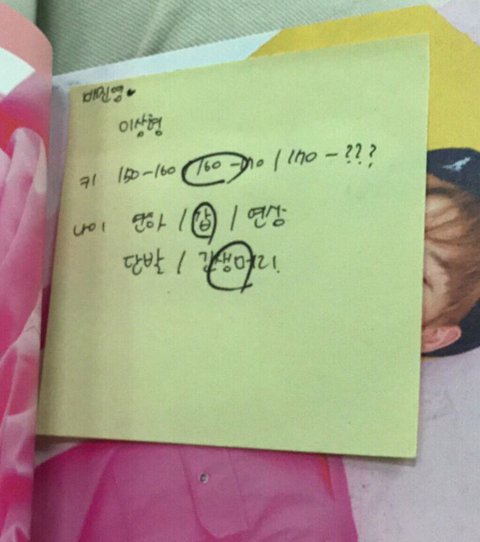 배진영
이상형
키 150-160 160-170 / 170-???
나이 연하 / 갑 / 연상
단발 / 긴생머리.